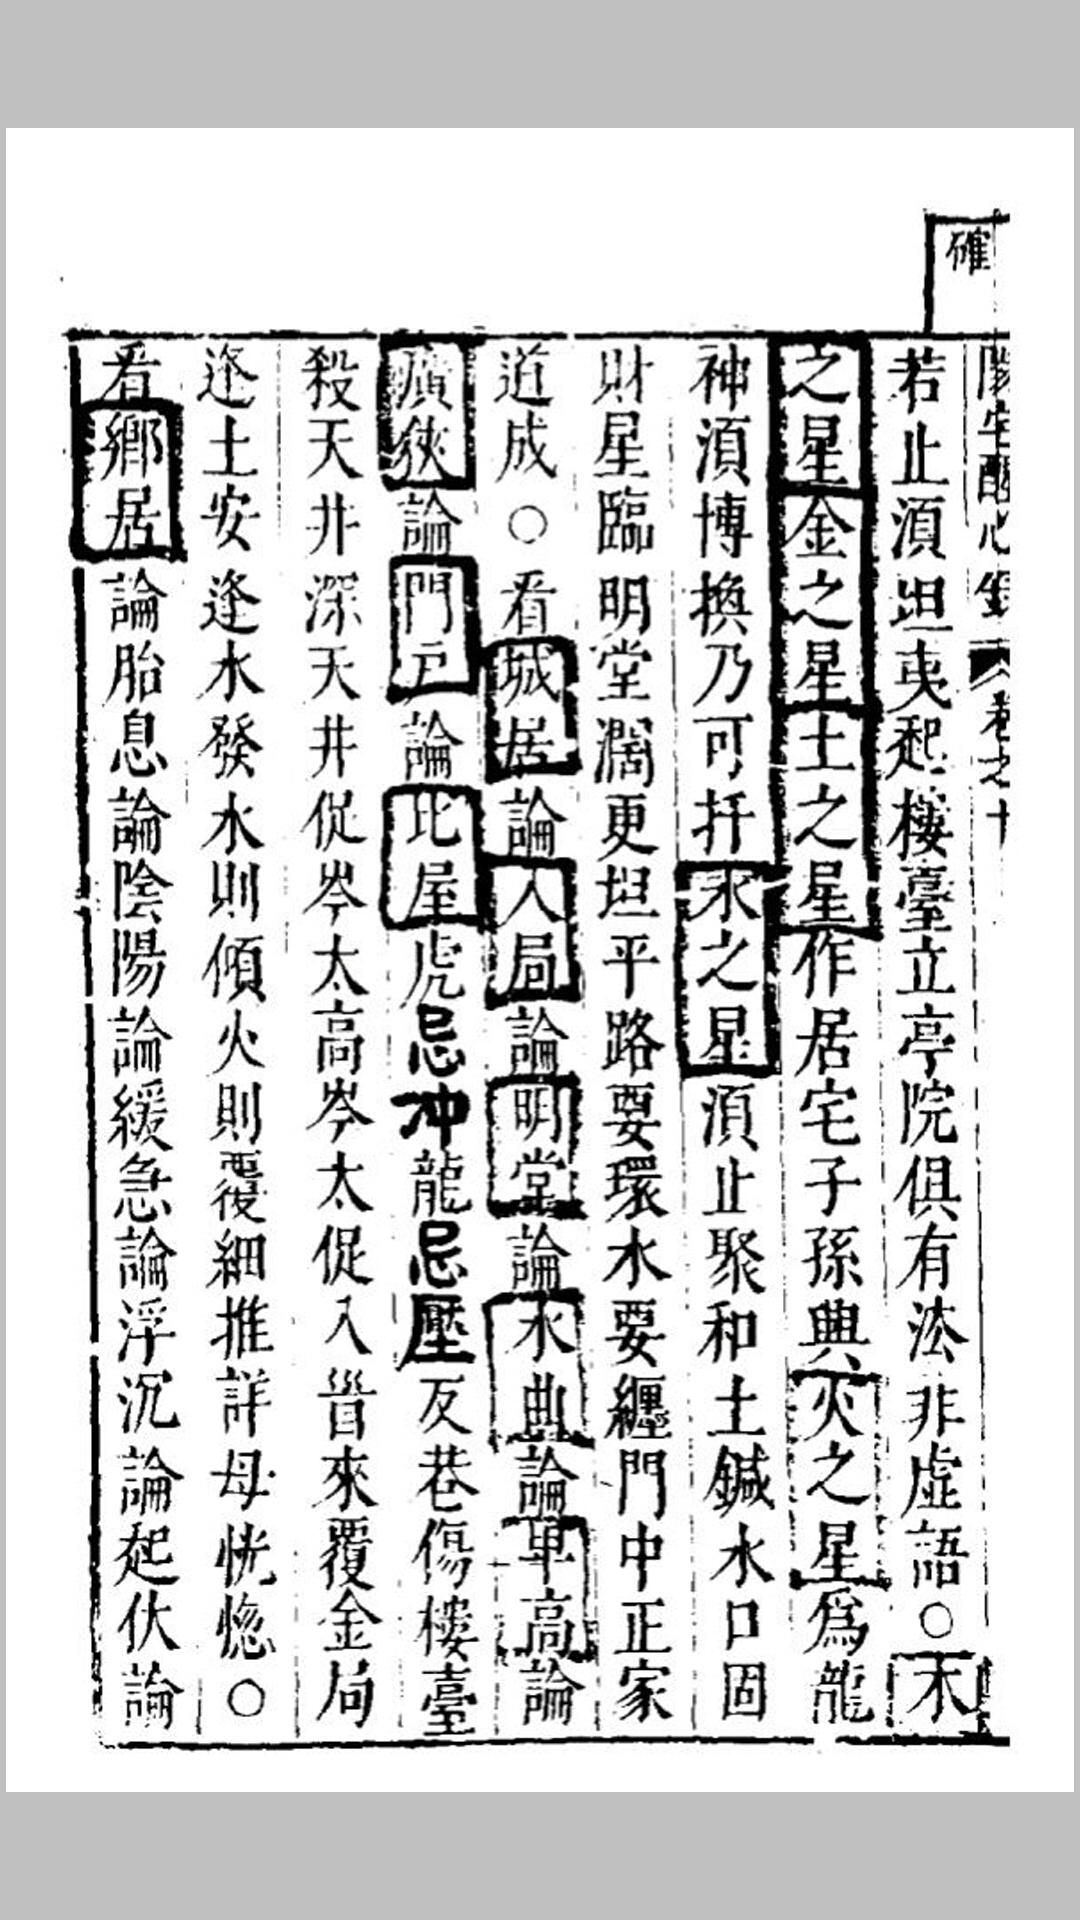 確
卷之十
若止湏坦夷起樓臺立亭院俱有法非虛語○木
之星金之星土之星作居宅子孫興火之星爲龍
神湏博換乃可扦水之星湏止聚和土鍼水口固
財星臨明堂濶更坦平路要環水要纏門中正家
道成○看城居論入局論明堂論水曲論卑高論
廣狹論門戶論比屋虎忌冲龍忌壓反巷傷樓臺
殺天井深天井促岑太高岑太促入首來覆金局
逢土安逢水發水則傾火則覆細推詳母恍惚○
看鄉居論胎息論陰陽論緩急論浮沉論起伏論